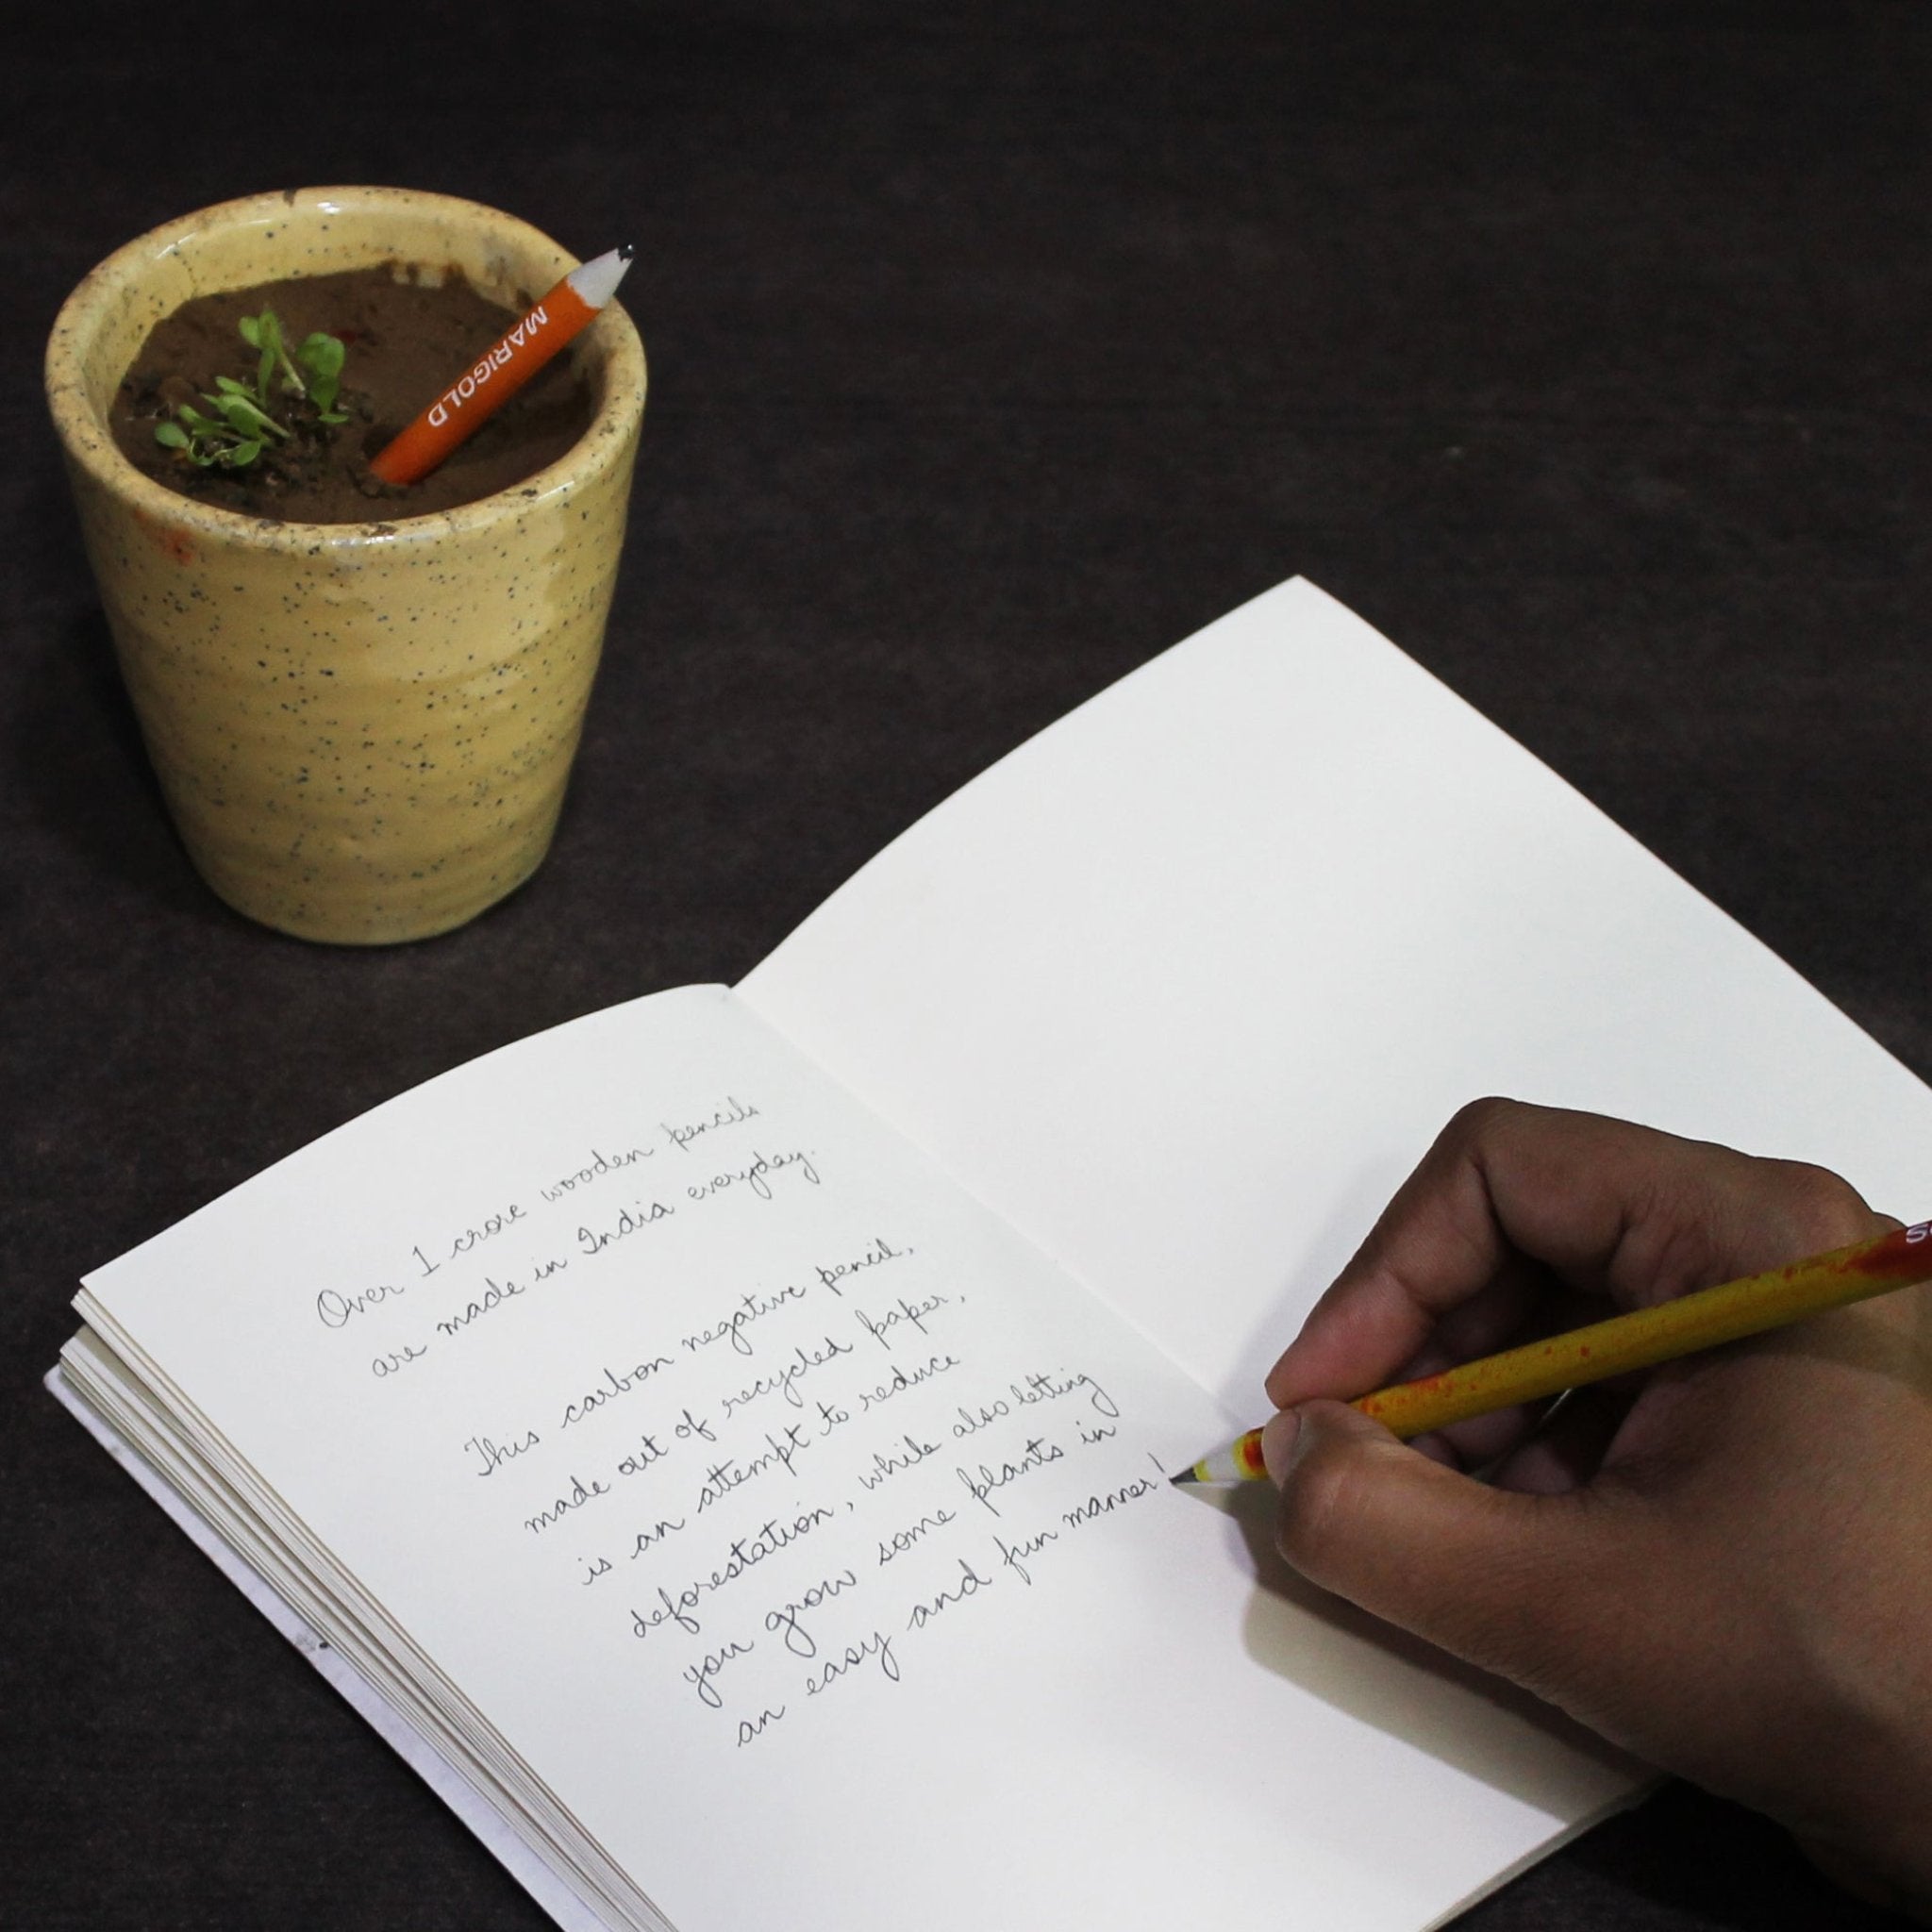 MARIGOLD
Over 1 crore wooden pencils
are made in India everyday.
This carbon negative pencil,
made out of recycled paper,
is an attempt to reduce
deforestation, while also letting
you grow some plants in
an easy and fun manner!